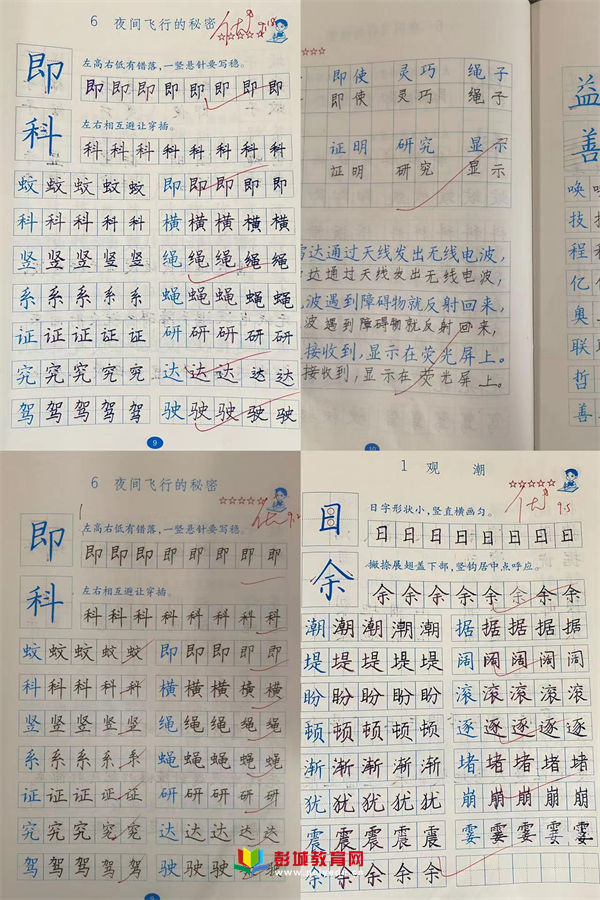 6 夜间飞行的秘密 优
即
左高右低有错落,一竖悬针要写稳。
即 即 即 即 即 即 即 即
科
左右相互避让穿插。
科 科 科 科 科 科 科 科
蚊 蚊 蚊 蚊 蚊 即 即 即 即 即
科 科 科 科 科 横 横 横 横 横
竖 竖 竖 竖 竖 绳 绳 绳 绳 绳
系 系 系 系 系 蝇 蝇 蝇 蝇 蝇
证 证 证 证 证 研 研 研 研 研
究 究 究 究 究 达 达 达 达 达
驾 驾 驾 驾 驾 驶 驶 驶 驶 驶
9
即使 灵巧 绳子
即使 灵巧 绳子
证明 研究 显示
证明 研究 显示
达通过天线发出无线电波,
达通过天线发出无线电波,
波遇到障碍物就反射回来,
波遇到障碍物就反射回来,
接收到,显示在荧光屏上。
接收到,显示在荧光屏上。
10
益
善
唤
技
程
亿
奥
联
哲
善
6 夜间飞行的秘密 优
即
左高右低有错落,一竖悬针要写稳。
即 即 即 即 即 即 即 即
科
左右相互避让穿插。
科 科 科 科 科 科 科 科
蚊 蚊 蚊 蚊 蚊 即 即 即 即 即
科 科 科 科 科 横 横 横 横 横
竖 竖 竖 竖 竖 绳 绳 绳 绳 绳
系 系 系 系 系 蝇 蝇 蝇 蝇 蝇
证 证 证 证 证 研 研 研 研 研
究 究 究 究 究 达 达 达 达 达
驾 驾 驾 驾 驾 驶 驶 驶 驶 驶
1 观 潮
优 9.5
日
日字形状小,竖直横画匀。
日 日 日 日 日 日 日 日
余
撇捺展翅盖下部,竖钩居中点呼应。
余 余 余 余 余 余 余 余
潮 潮 潮 潮 潮 据 据 据 据 据
堤 堤 堤 堤 堤 阔 阔 阔 阔 阔
盼 盼 盼 盼 盼 滚 滚 滚 滚 滚
顿 顿 顿 顿 顿 逐 逐 逐 逐 逐
渐 渐 渐 渐 渐 堵 堵 堵 堵 堵
犹 犹 犹 犹 犹 崩 崩 崩 崩 崩
震 震 震 震 震 霎 霎 霎 霎 霎
余 余 余 余 余
彭城教育网